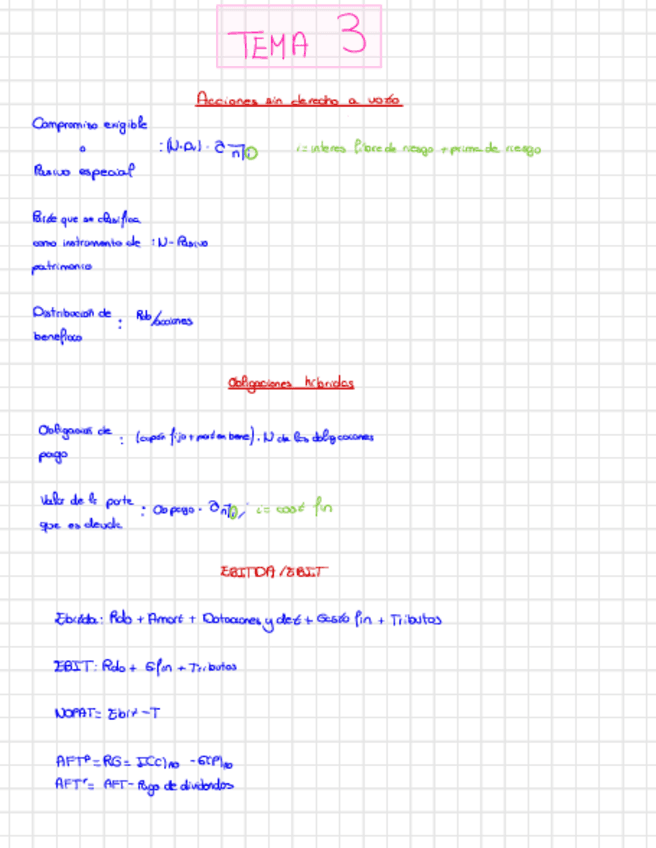 TEMA 3
Acciones sin derecho a voto
Compromiso exigible
o : (N·Dv) · a n̅|i i = interes libre de riesgo + prima de riesgo
Pasivo especial
Parte que se clasifica
como instrumento de : N - Pasivo
patrimonio
Distribución de : Rdo/acciones
beneficio
Obligaciones híbridas
Obligación de : (cupón fijo + part en bene) · N de las obligaciones
pago
Valor de la parte : Ob pago · a n̅|i ; i = cost fin
que es deuda
EBITDA / EBIT
Ebitda: Rdo + Amort + Dotaciones y det + Gasto fin + Tributos
EBIT: Rdo + Gfin + Tributos
NOPAT = Ebit - T
= RG = I(C) - G(P)
= AFT - Pago de dividendos